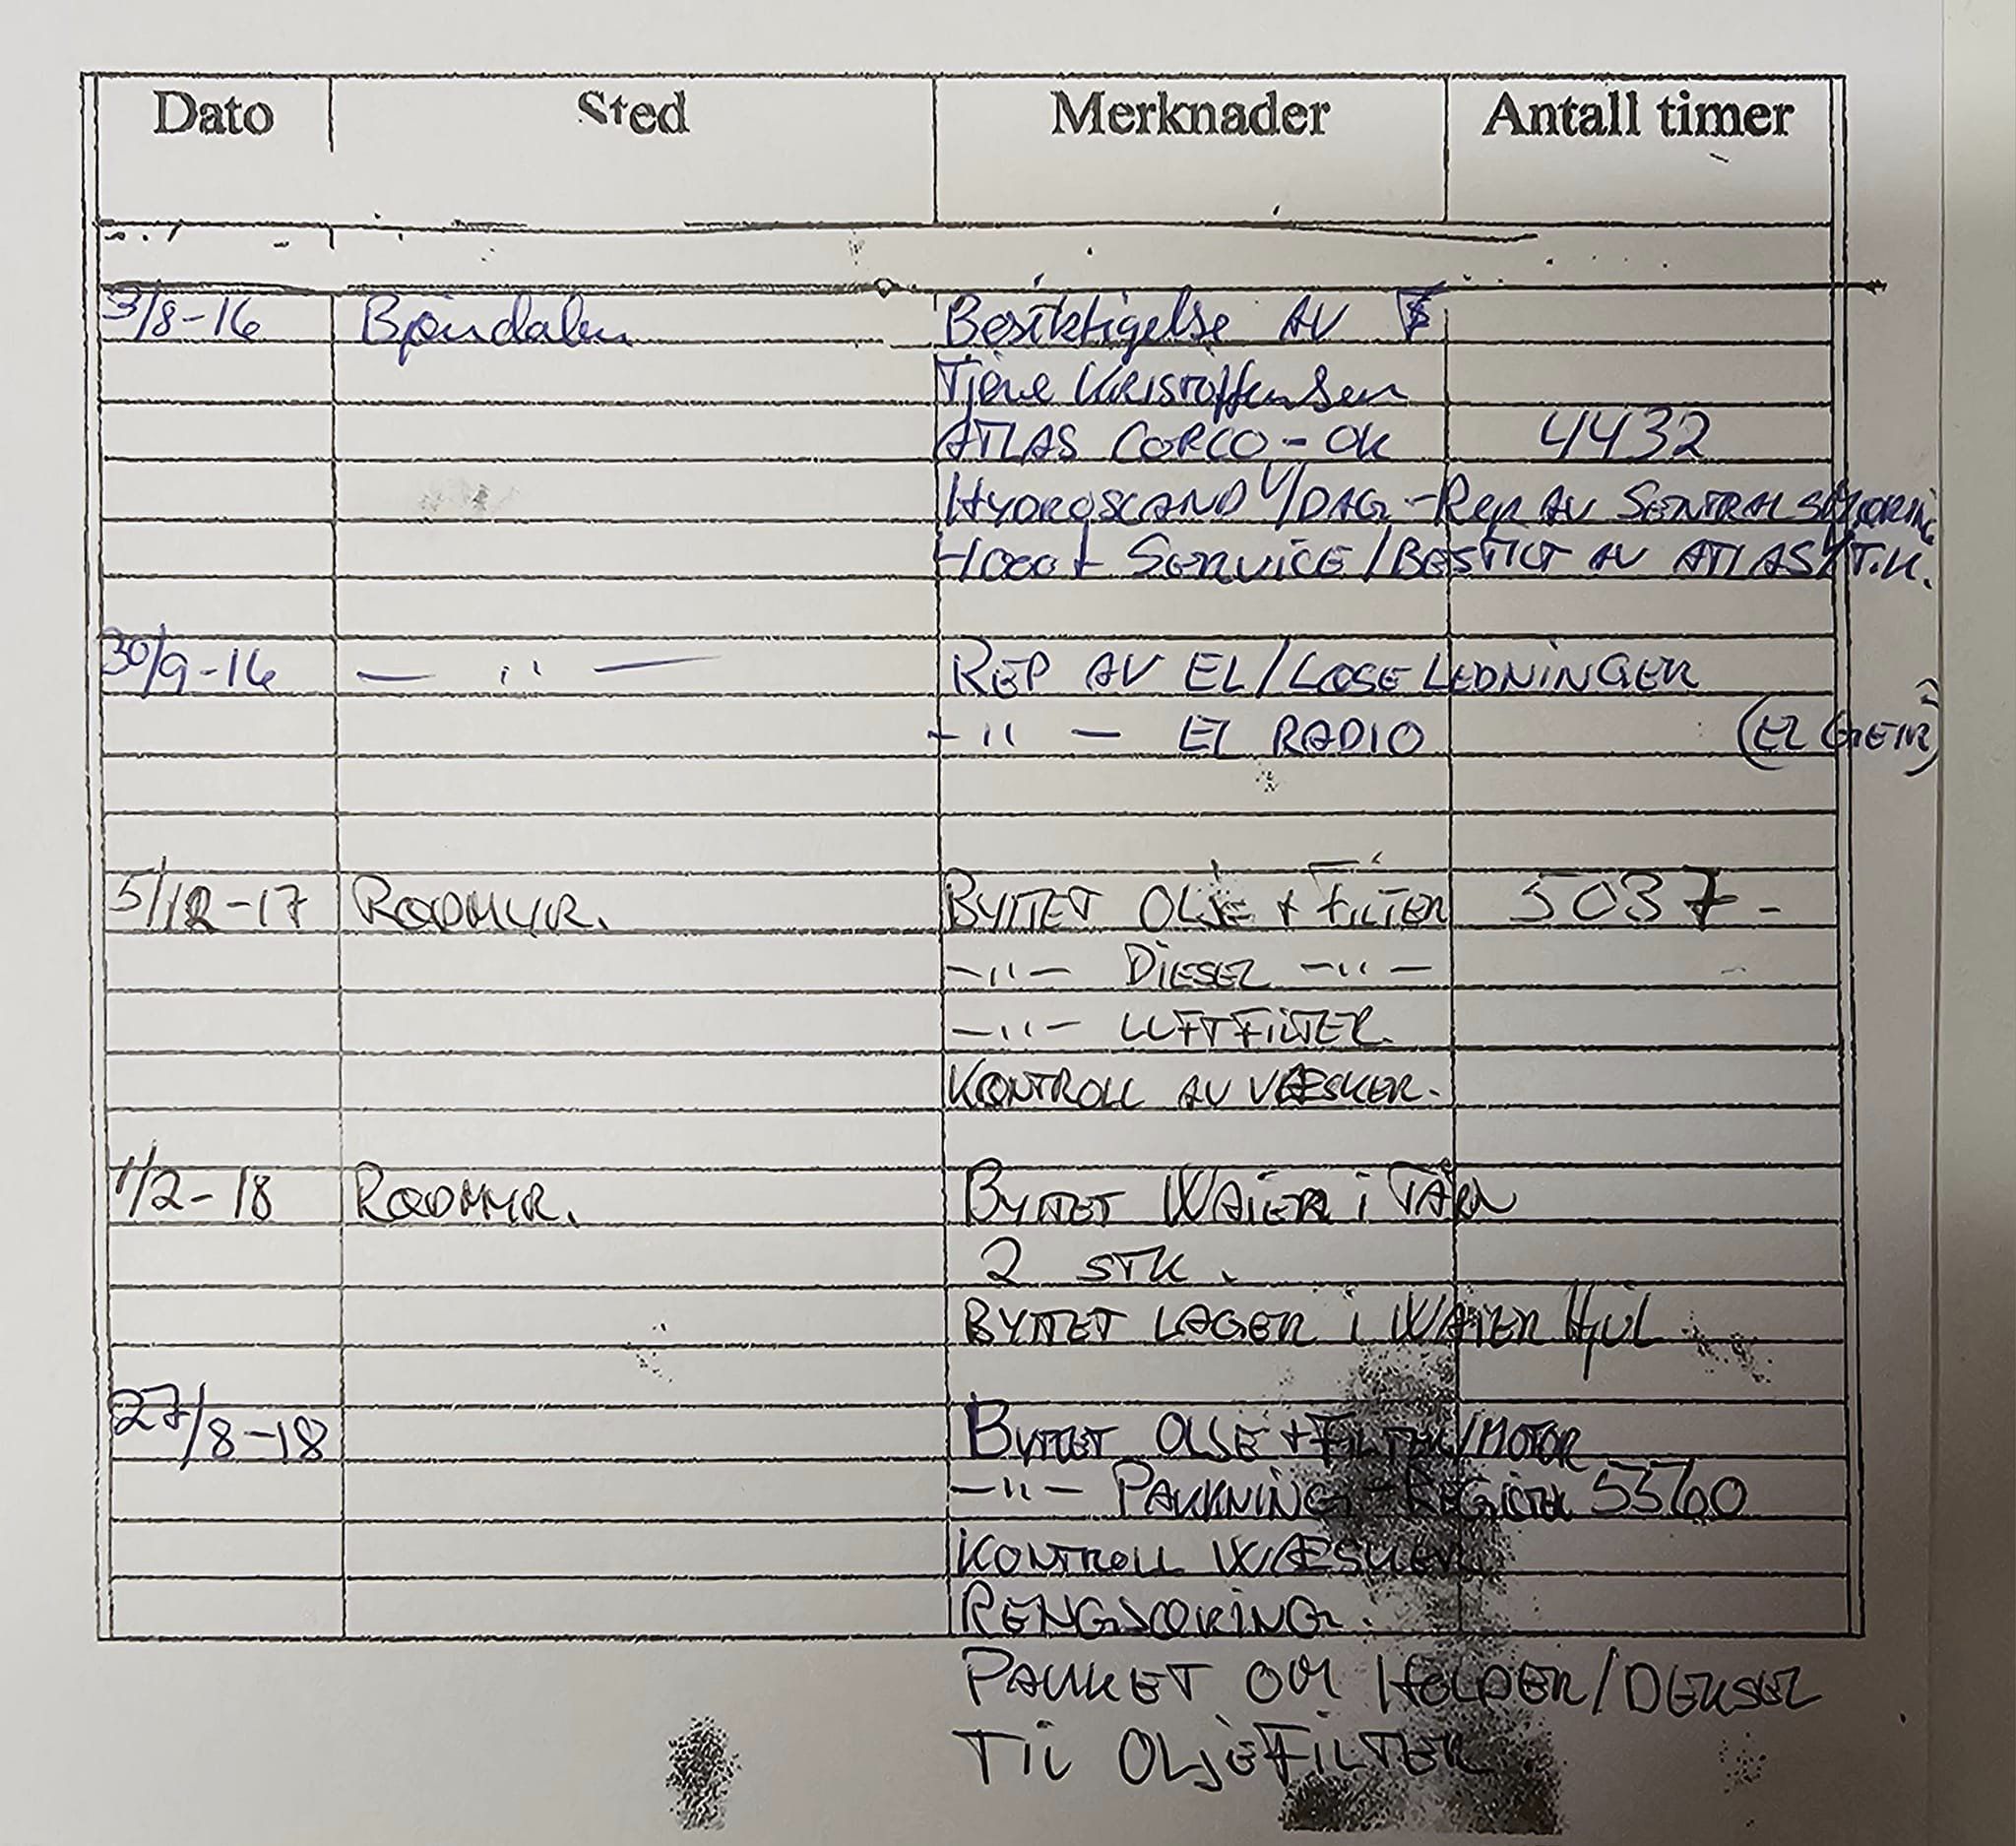 Dato Sted Merknader Antall timer
3/8-16 Bjørndalen Besiktigelse AV
Tjerre Kristoffensen
ATLAS CORCO - OK 4432
HYDROSCAND V/DAG - Rep AV SENTRALSMØRING
1000t SERVICE/BESTILT AV ATLAS/T.K.
30/9-16 — '' — REP AV EL/LØSE LEDNINGER
- '' - EL RADIO (EL GEIR)
5/12-17 RØDMYR. BYTTET OLJE + FILTER 5037-
-''- DIESEL -''-
-''- LUFTFILTER.
KONTROLL AV VÆSKER.
1/2-18 RØDMYR. BYTTET WAIER i TÅRN
2 STK.
BYTTET LAGER i WAIER Hjul
27/8-18 BYTTET OLJE + FILTER/MOTOR
-''- PAKNING - 5360
KONTROLL VÆSKER
RENGJØRING.
PAKKET OM HOLDER/DEKSEL
TIL OLJEFILTER.